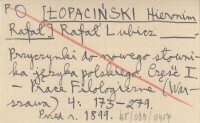 O [ŁOPACIŃSKI Hieronim
Rafał] Rafał Lubicz
Przyczynki do nowego słowni-
ka języka polskiego. Część I
— Prace Filologiczne (War-
szawa) 4: 173-279.
r. 1899.